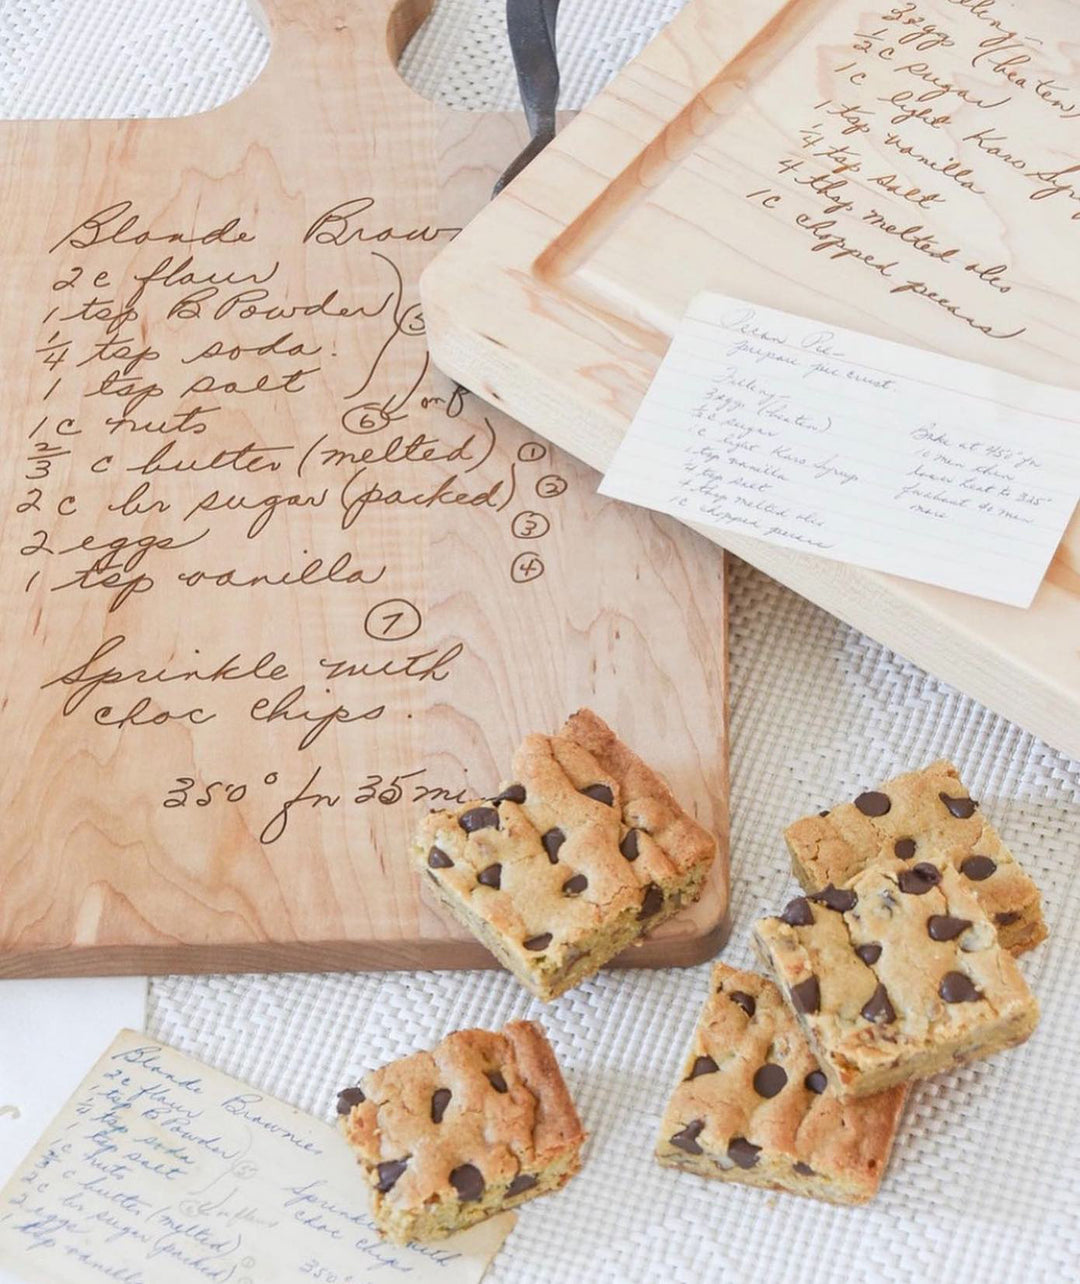 Blonde Brow
2 c flour
1 tsp B Powder
1/4 tsp soda.
1 tsp salt
5
1 c nuts
6
2/3 c butter (melted) 1
2 c br sugar (packed) 2
2 eggs 3
1 tsp vanilla 4
7
Sprinkle with
choc chips.
350° fn 35 mi
3 eggs (beaten)
1/2 c sugar
1c light Karo Syr
1 tsp vanilla
1/4 tsp salt
4 tbsp melted oleo
1c chopped pecans
Pecan Pie
prepare pie crust
Filling
3 eggs (beaten)
1/2 c sugar
1c light Karo Syrup
1 tsp vanilla
1/4 tsp salt
4 tbsp melted oleo
1c chopped pecans
Bake at 450° fn
10 min then
lower heat to 325°
more
Blonde Brownies
2 c flour
1 tsp B Powder
1/4 tsp soda
1 tsp salt
5
1c nuts
2/3 c butter (melted) 1
2 c br sugar (packed)
2 eggs
1 tsp vanilla
Sprinkle with
choc chips
350°